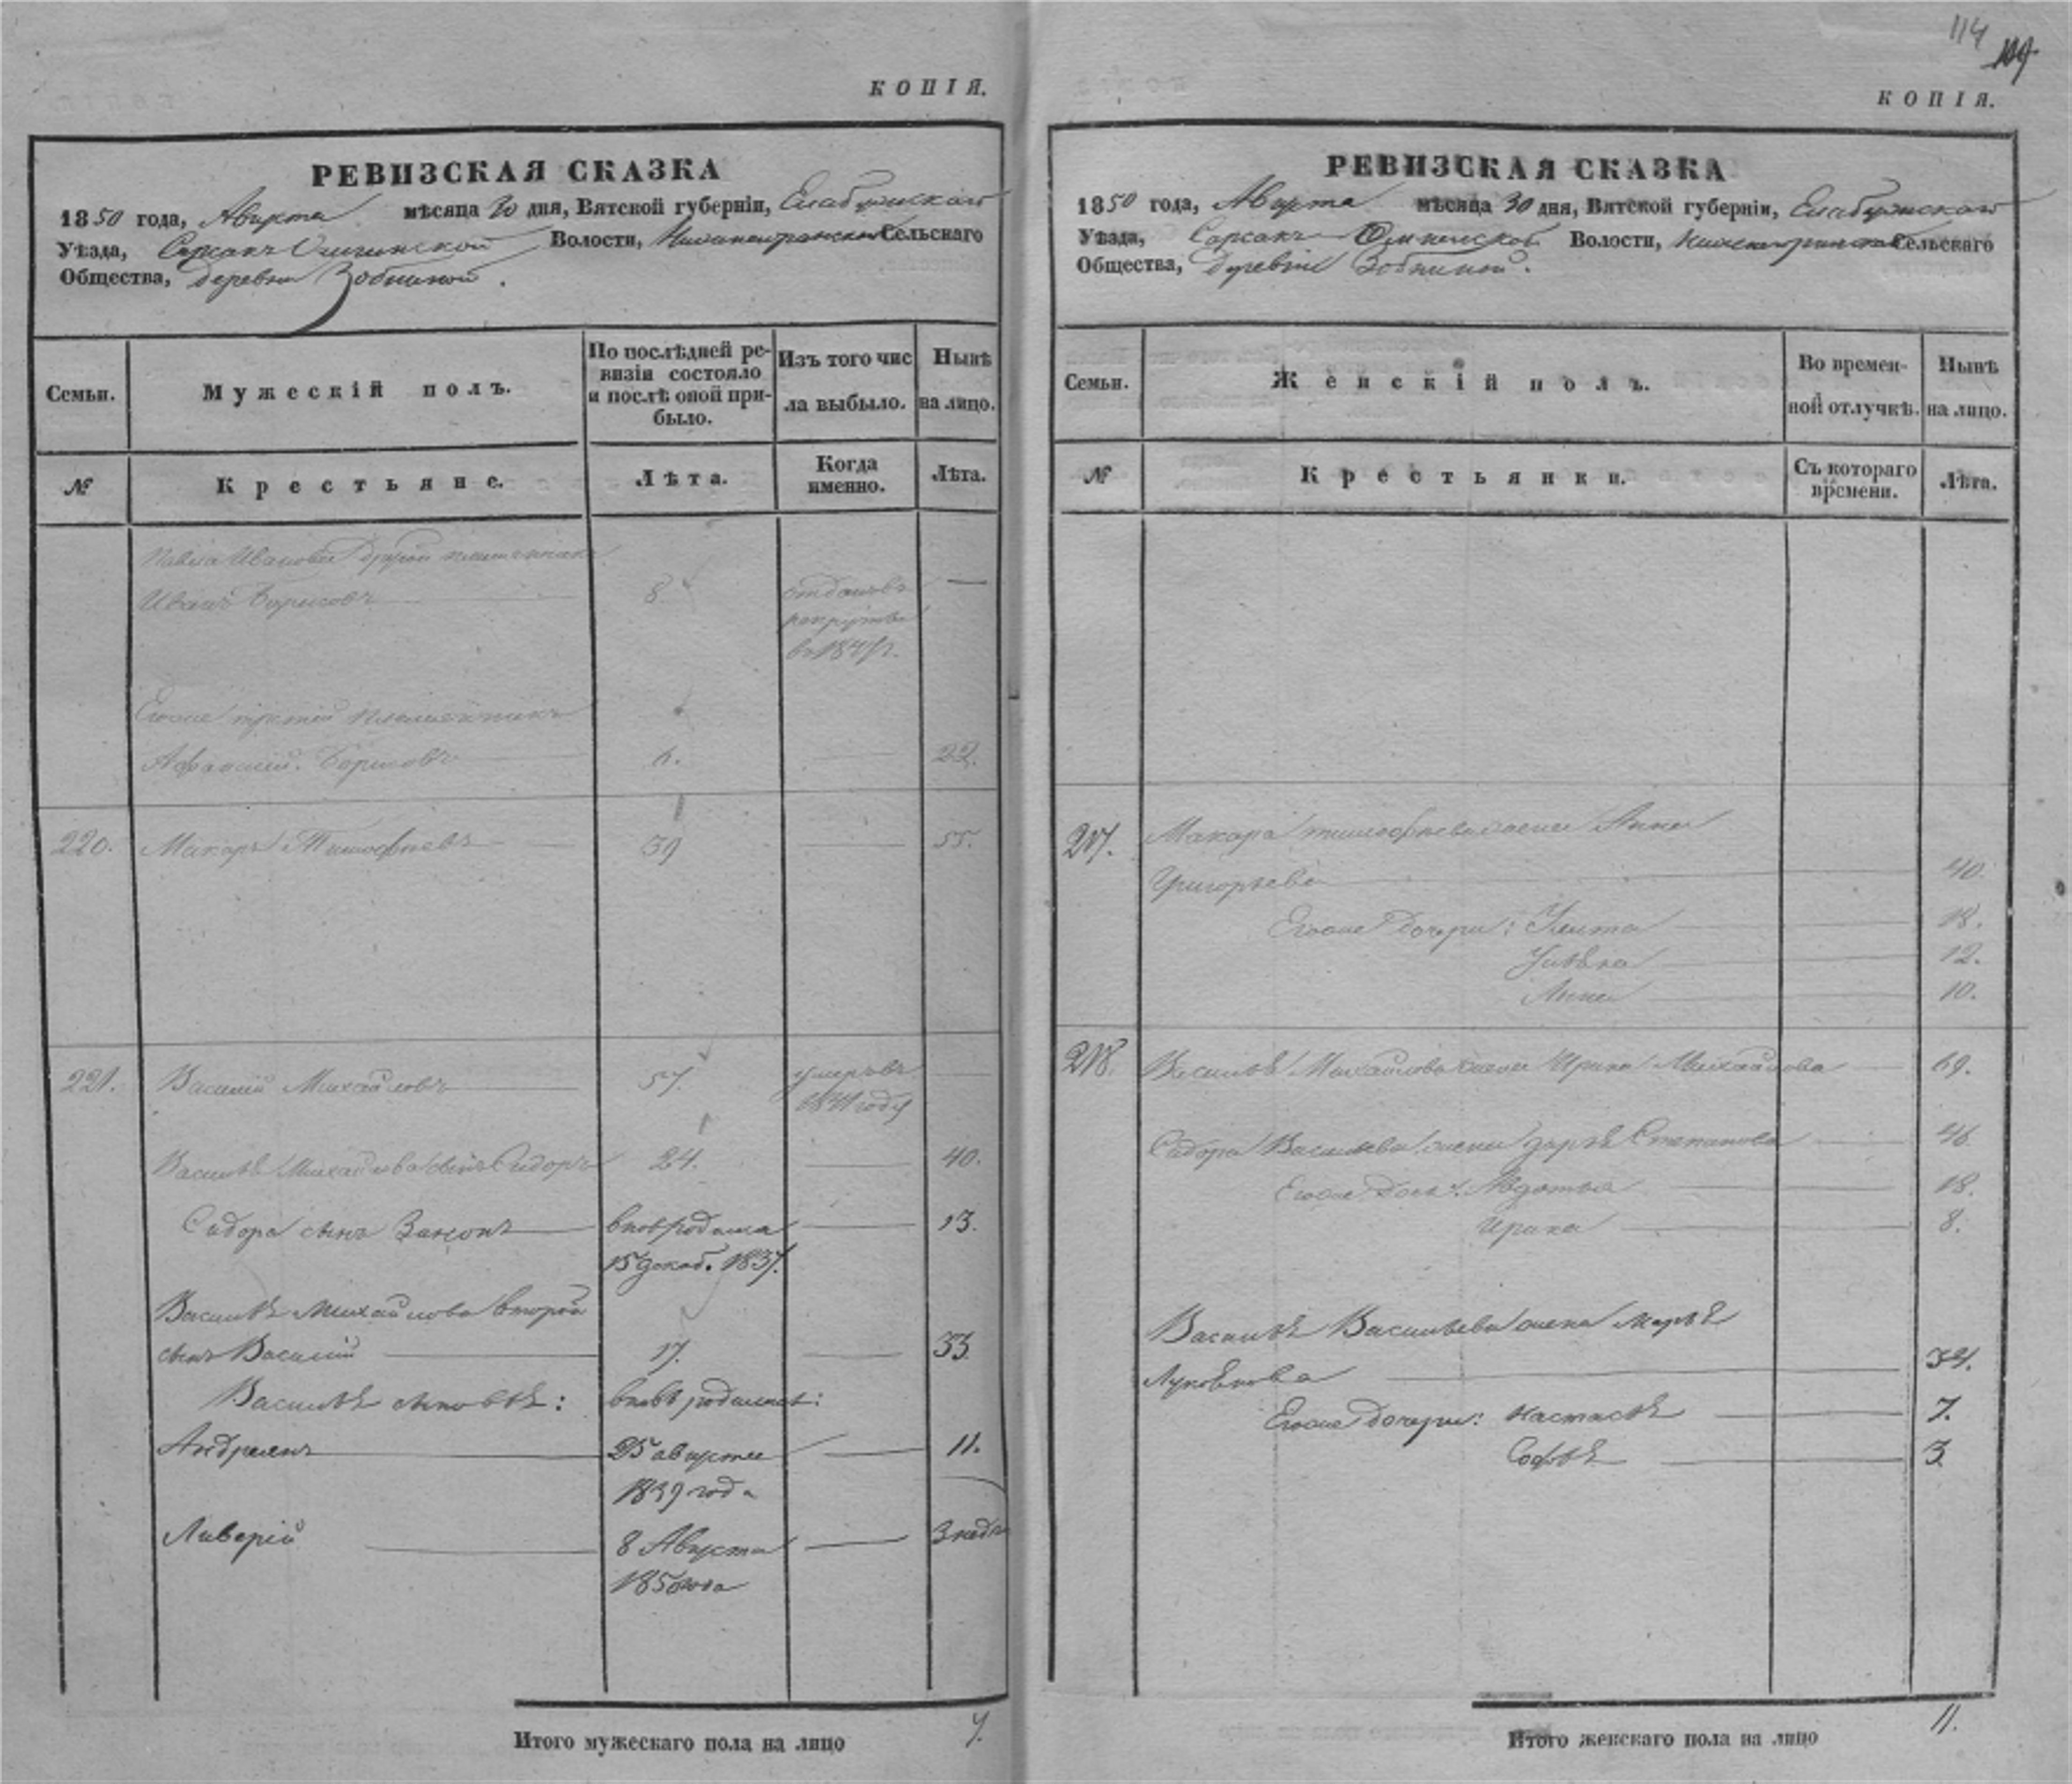 КОПІЯ.
РЕВИЗСКАЯ СКАЗКА
1850 года, Августа мѣсяца 30 дня, Вятской губерніи, Елабужскаго
Уѣзда, Сарсакъ Омгинской Волости, Сельскаго
Общества, деревни Зобниной.
Семьи.
Мужескій полъ.
По послѣдней ре-
визіи состояло
и послѣ оной при-
было.
Изъ того чис
ла выбыло.
Нынѣ
на лицо.
№
Крестьяне.
Лѣта.
Когда
именно.
Лѣта.
Павла Иванова другой племянникъ
Иванъ Борисовъ 8 отданъ въ —
рекруты
въ 184 г.
Его же третій племянникъ
Афанасій Борисовъ 6. — 22.
220. Макаръ Тимофѣевъ 39 — 55.
221. Василій Михайловъ 57. умеръ въ —
1841 году
Василья Михайлова сынъ Сидоръ 24. — 40.
Сидора сынъ вновь родился — 13.
15 декаб. 1837.
Василья Михайлова второй
сынъ Василий 17. — 33
Василья сыновья: вновь родились:
Андреянъ 25 августа — 11.
1839 года
Ливерій 8 Августа — 3 недѣ
1850 года
Итого мужескаго пола на лицо 7.
114
109
КОПІЯ.
РЕВИЗСКАЯ СКАЗКА
1850 года, Августа мѣсяца 30 дня, Вятской губерніи, Елабужскаго
Уѣзда, Сарсакъ Омгинской Волости, Сельскаго
Общества, деревни Зобниной.
Семьи.
Женскій полъ.
Во времен-
ной отлучкѣ.
Нынѣ
на лицо.
№
Крестьянки.
Съ котораго
времени.
Лѣта.
217. Макара Тимофѣева жена Анна
Григорьева 40.
Его же дочери: Улита 18.
12.
Анна 10.
218. Василья Михайлова жена Ирина Михайлова 69.
Сидора Васильева жена Дарья Степанова 46.
Его же дочь: Авдотья 18.
Ирина 8.
Василья Васильева жена Марья
34.
Его же дочери: Настасья 7.
Софья 3.
Итого женскаго пола на лицо 11.